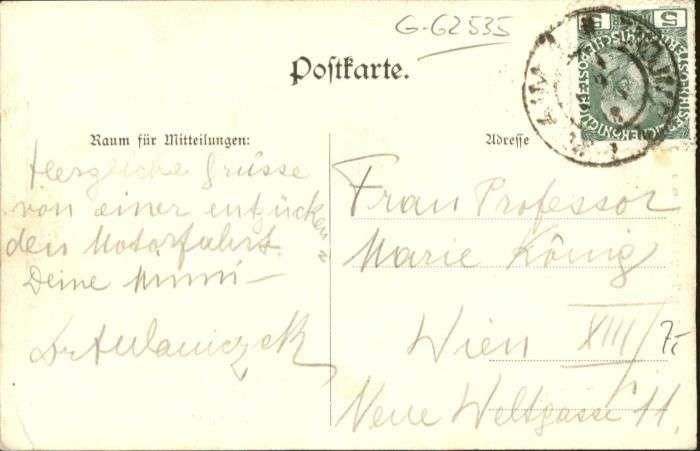 G-62535
Postkarte.
Raum für Mitteilungen:
Herzliche Grüsse
von einer entzücken
den Motorfahrt.
Deine Mimi—
Adresse
Frau Professor
Marie König
Wien XIII/
7,-
Neue Weltgasse 11.
5 5